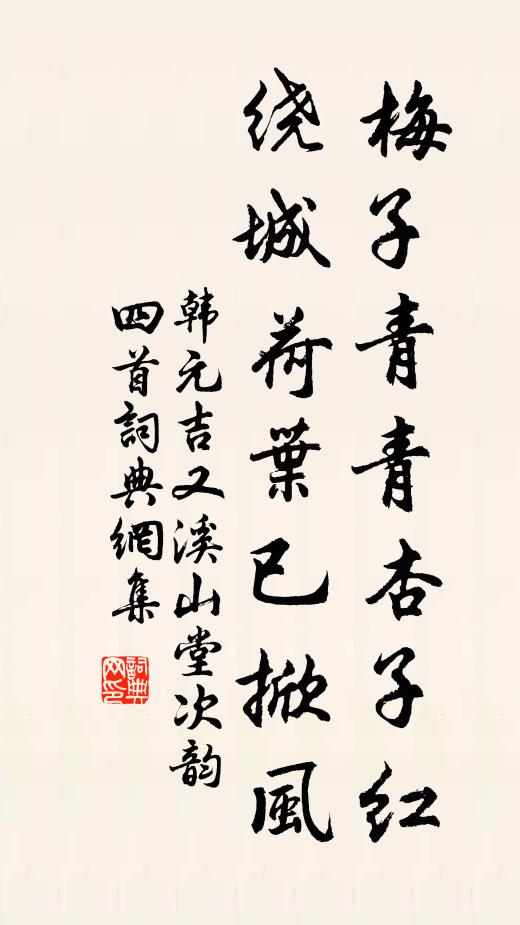 梅子青青杏子红
绕城荷葉已掀風
韩元吉又溪山堂次韵
四首詞典網集
詞典网印